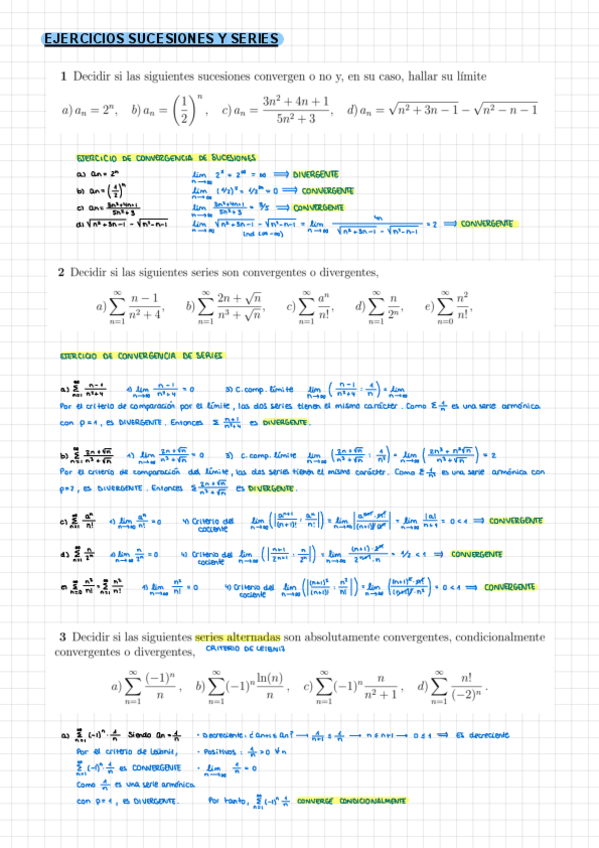 EJERCICIOS SUCESIONES Y SERIES
1 Decidir si las siguientes sucesiones convergen o no y, en su caso, hallar su límite
a) aₙ = 2ⁿ, b) aₙ = (1/2)ⁿ, c) aₙ = (3n² + 4n + 1)/(5n² + 3), d) aₙ = √(n² + 3n − 1) − √(n² − n − 1)
EJERCICIO DE CONVERGENCIA DE SUCESIONES
a) an = 2ⁿ lim n→∞ 2ⁿ = 2^∞ = ∞ ⟹ DIVERGENTE
b) an = (1/2)ⁿ lim n→∞ (1/2)ⁿ = 1/2^∞ = 0 ⟹ CONVERGENTE
c) an = (3n²+4n+1)/(5n²+3) lim n→∞ (3n²+4n+1)/(5n²+3) = 3/5 ⟹ CONVERGENTE
d) √(n²+3n−1) − √(n²−n−1) lim n→∞ √(n²+3n−1) − √(n²−n−1) = lim n→∞ 4n/(√(n²+3n−1) √(n²−n−1)) = 2 ⟹ CONVERGENTE
Ind (∞−∞)
2 Decidir si las siguientes series son convergentes o divergentes,
a) ∑ n=1 ∞ (n − 1)/(n² + 4), b) ∑ n=1 ∞ (2n + √n)/(n³ + √n), c) ∑ n=1 ∞ aⁿ/n!, d) ∑ n=1 ∞ n/2ⁿ, e) ∑ n=0 ∞ n²/n!,
EJERCICIO DE CONVERGENCIA DE SERIES
a) ∑ n=1 ∞ (n−1)/(n²+4) 1) lim n→∞ (n−1)/(n²+4) = 0 3) C. comp. límite lim n→∞ ((n−1)/(n²+4) : 1/n) = lim n→∞
Por el criterio de comparación por el límite, las dos series tienen el mismo carácter. Como ∑ 1/n es una serie armónica
con p=1, es DIVERGENTE. Entonces ∑ (n+1)/(n²+4) es DIVERGENTE.
b) ∑ n=1 ∞ (2n+√n)/(n³+√n) 1) lim n→∞ (2n+√n)/(n³+√n) = 0 3) C. comp. límite lim n→∞ ((2n+√n)/(n³+√n) : 1/n²) = lim n→∞ (2n³+n²√n)/(n³+√n) = 2
Por el criterio de comparación del límite, las dos series tienen el mismo carácter. Como ∑ 1/n² es una serie armónica con
p=2, es DIVERGENTE. Entonces ∑ (2n+√n)/(n³+√n) es DIVERGENTE.
c) ∑ n=1 ∞ aⁿ/n! 1) lim n→∞ aⁿ/n! = 0 4) Criterio del cociente = lim n→∞ |a|/(n+1) = 0 < 1 ⟹ CONVERGENTE
d) ∑ n=1 ∞ n/2ⁿ 1) lim n→∞ n/2ⁿ = 0 4) Criterio del cociente = 1/2 < 1 ⟹ CONVERGENTE
e) ∑ n=0 ∞ n²/n! = ∑ n²/n! 1) lim n→∞ n²/n! = 0 4) Criterio del cociente = 0 < 1 ⟹ CONVERGENTE
3 Decidir si las siguientes series alternadas son absolutamente convergentes, condicionalmente
convergentes o divergentes, CRITERIO DE LEIBNIZ
a) ∑ n=1 ∞ (−1)ⁿ/n, b) ∑ n=1 ∞ (−1)ⁿ ln(n)/n, c) ∑ n=1 ∞ (−1)ⁿ n/(n² + 1), d) ∑ n=1 ∞ n!/(−2)ⁿ.
a) ∑ n=1 ∞ (−1)ⁿ · 1/n Siendo an = 1/n · Decreciente: ¿an+1 ≤ an? → 1/(n+1) ≤ 1/n → n ≤ n+1 → 0 ≤ 1 ⟹ Es decreciente
Por el criterio de Leibniz, · Positivos: 1/n > 0 ∀n
∑ n=1 ∞ (−1)ⁿ · 1/n es CONVERGENTE · lim n→∞ 1/n = 0
Como 1/n es una serie armónica
con p=1, es DIVERGENTE. Por tanto, ∑ n=1 ∞ (−1)ⁿ 1/n CONVERGE CONDICIONALMENTE